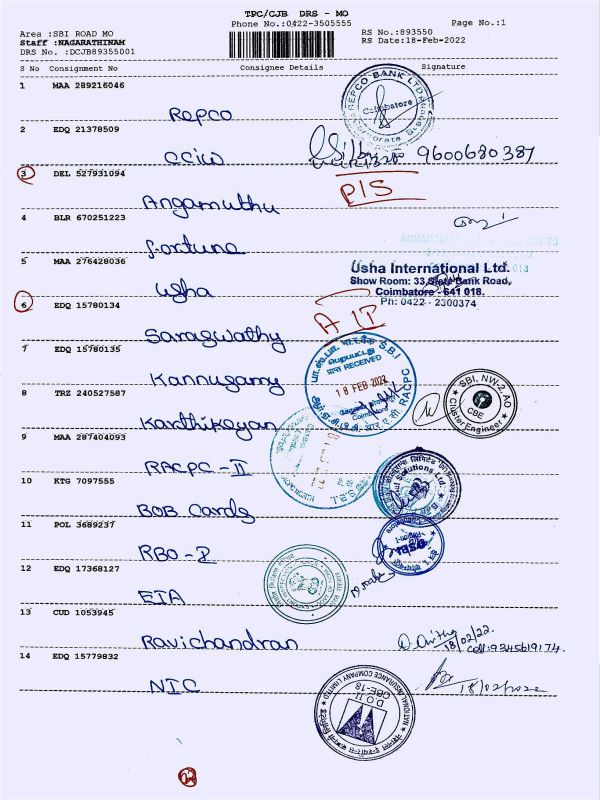 TPC/CJB DRS - MO
Phone No.:0422-3505555
Page No.:1
Area :SBI ROAD MO
RS No.:893550
Staff :NAGARATHINAM
RS Date:18-Feb-2022
DRS No. :DCJB89355001
S No Consignment No Consignee Details Signature
1 MAA 289216046
Repco
REPCO BANK LTD
Coimbatore
2 EDQ 21378509
CCIW
9600680387
3 DEL 527931094
PIS
Angamuthu
4 BLR 670251223
fortune
5 MAA 276428036
Usha International Ltd.
Show Room: 33, State Bank Road,
Coimbatore - 641 018.
Ph: 0422 - 2300374
Usha
6 EDQ 15780134
AIP
Saraswathy
7 EDQ 15780135
S.B.I RACPC
RECEIVED
18 FEB 2022
Coimbatore
Kannusamy
8 TRZ 240527587
SBI, NW-2, AO
CBE
Cluster Engineer
Karthikeyan
9 MAA 287404093
RACPC - II
10 KTG 7097555
Solutions Ltd.
BOB Cards
11 POL 3689237
SBI
RBO - I
12 EDQ 17368127
ETA
13 CUD 1053945
Ravichandran
18/02/22.
Cell: 9345619174.
14 EDQ 15779832
NIC
18/02/2022
NATIONAL INSURANCE COMPANY LIMITED
D.O. II
CBE-18